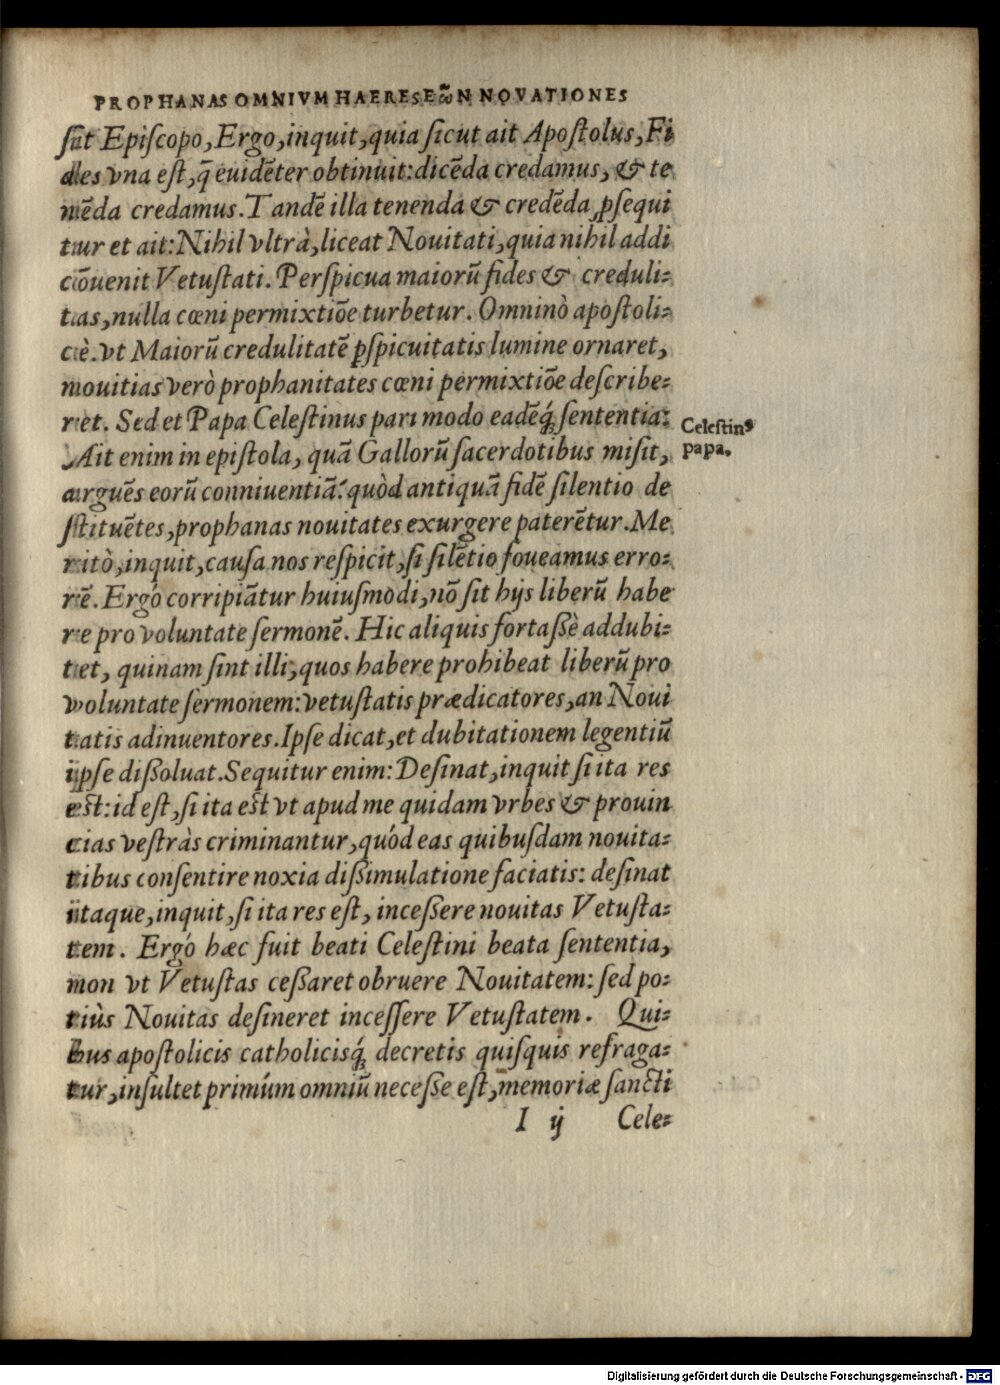 PROPHANAS OMNIVM HAERESEωN NOVATIONES
ſūt Epiſcopo, Ergo, inquit, quia ſicut ait Apoſtolus, Fi
des vna eſt, q̄ euidēter obtinuit: dicēda credamus, & te
nēda credamus. Tandē illa tenenda & credēda ꝑſequi
tur et ait: Nihil vltrà, liceat Nouitati, quia nihil addi
cōuenit Vetuſtati. Perſpicua maiorū fides & creduli⸗
tas, nulla cœni permixtiōe turbetur. Omninò apoſtoli⸗
cè. vt Maiorū credulitatē ꝑſpicuitatis lumine ornaret,
nouitias verò prophanitates cœni permixtiōe deſcribe⸗
ret. Sed et Papa Celeſtinus pari modo eadēq́ꝫ ſententia:
Ait enim in epiſtola, quā Gallorū ſacerdotibus miſit,
arguēs eorū conniuentiā: quòd antiquā fidē ſilentio de
ſtituētes, prophanas nouitates exurgere paterētur. Me
ritò, inquit, cauſa nos reſpicit, ſi ſilētio foueamus erro⸗
rē. Ergó corripiātur huiuſmodi, nō ſit hijs liberū habe
re pro voluntate ſermonē. Hic aliquis fortaßè addubi⸗
tet, quinam ſint illi, quos habere prohibeat liberū pro
voluntate ſermonem: vetuſtatis prædicatores, an Noui
tatis adinuentores. Ipſe dicat, et dubitationem legentiū
ipſe dißoluat. Sequitur enim: Deſinat, inquit ſi ita res
eſt: id eſt, ſi ita eſt vt apud me quidam vrbes & prouin
cias veſtràs criminantur, quód eas quibuſdam nouita⸗
tibus conſentire noxia dißimulatione faciatis: deſinat
itaque, inquit, ſi ita res eſt, inceßere nouitas Vetuſta⸗
tem. Ergó hæc fuit beati Celeſtini beata ſententia,
non vt Vetuſtas ceßaret obruere Nouitatem: ſed po⸗
tiùs Nouitas deſineret inceſſere Vetuſtatem. Qui⸗
bus apoſtolicis catholicisq́ꝫ decretis quiſquis refraga⸗
tur, inſultet primúm omniū neceße eſt, memoriæ ſancti
I ij Cele⸗
Celeſtinꝰ
papa.
Digitalisierung gefördert durch die Deutsche Forschungsgemeinschaft - DFG